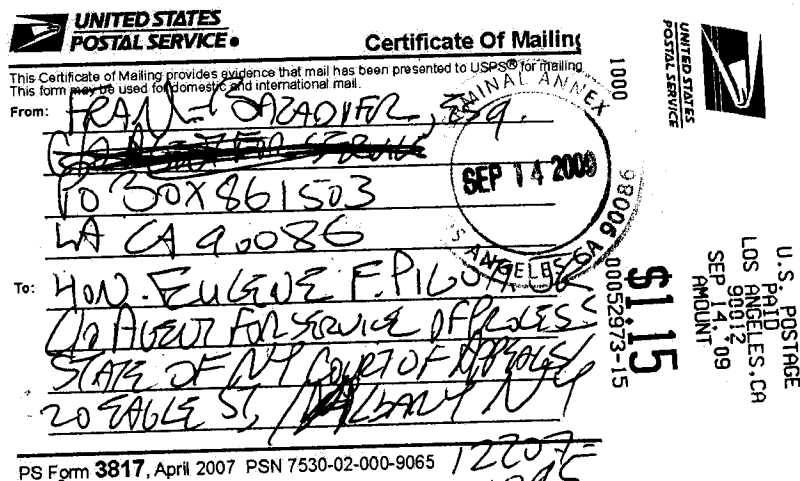 UNITED STATES
POSTAL SERVICE
Certificate Of Mailing
This Certificate of Mailing provides evidence that mail has been presented to USPS® for mailing
This form may be used for domestic and international mail.
From: , ESQ.
PO BOX 861503
LA CA 90086
To: HON. EUGENE F.
C/O AGENT FOR SERVICE OF PROCESS
STATE OF NY COURT OF APPEALS
20 EAGLE ST, ALBANY NY
12207-
PS Form 3817, April 2007 PSN 7530-02-000-9065
MINAL ANNEX
SEP 14 2009
S ANGELES CA 90086
1000
00052973-15
UNITED STATES
POSTAL SERVICE
$1.15
U.S. POSTAGE
PAID
LOS ANGELES, CA
90012
SEP 14, 09
AMOUNT